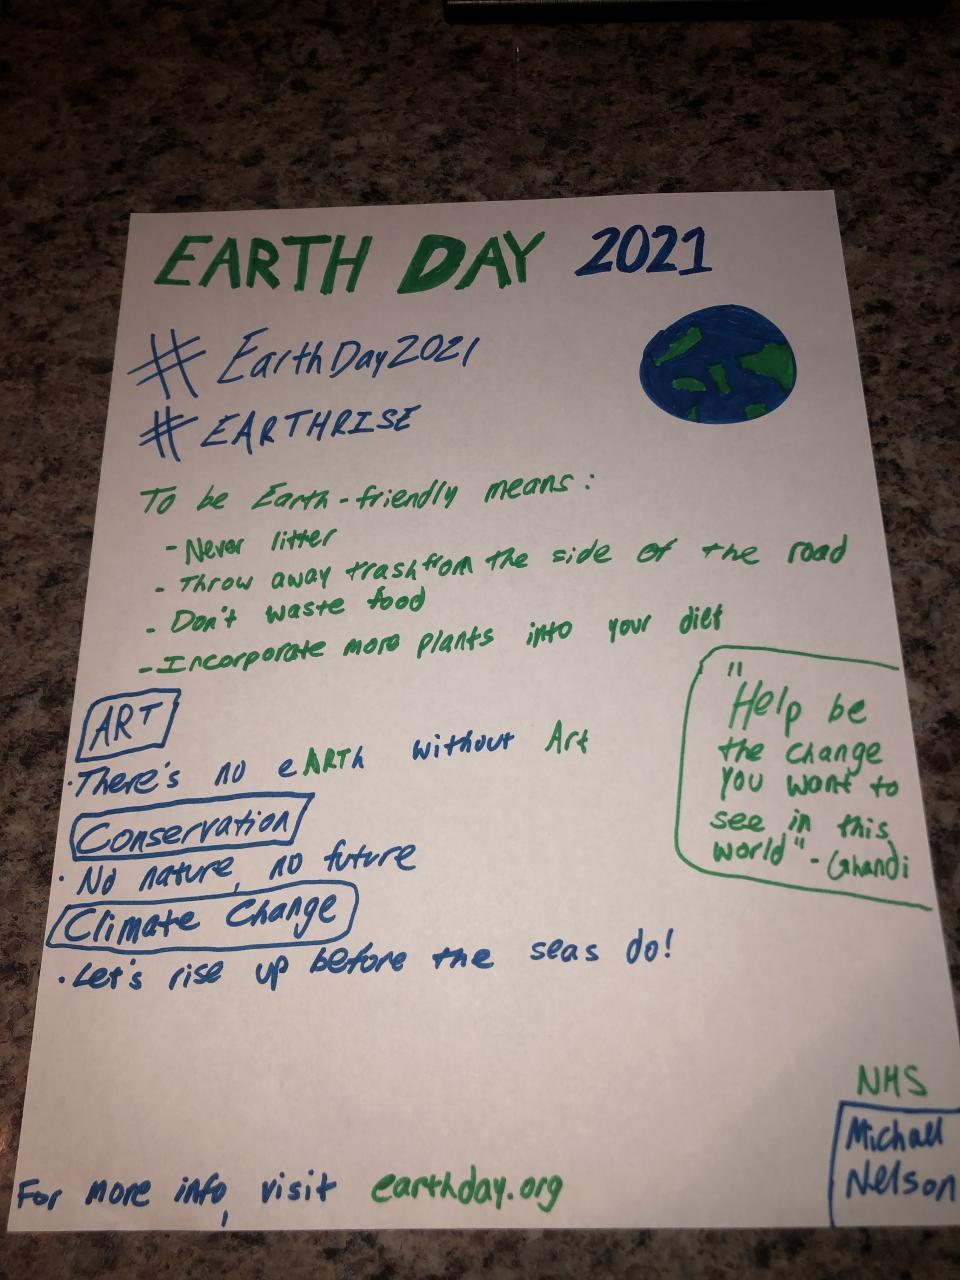 EARTH DAY 2021
# EarthDay2021
# EARTHRISE
To be Earth-friendly means:
- Never litter
- Throw away trash from the side of the road
- Don't waste food
- Incorporate more plants into your diet
ART
· There's no eARTh without Art
Conservation
· No nature, no future
Climate Change
· Let's rise up before the seas do!
"Help be
the change
you want to
see in this
world" - Ghandi
NHS
Michael
Nelson
For more info, visit earthday.org